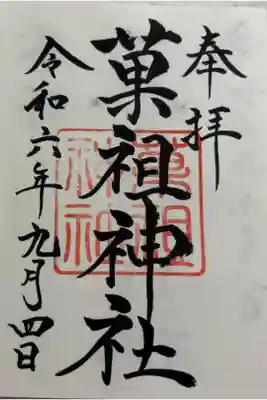 奉拝
菓祖神社
令和六年九月四日
菓祖
神社